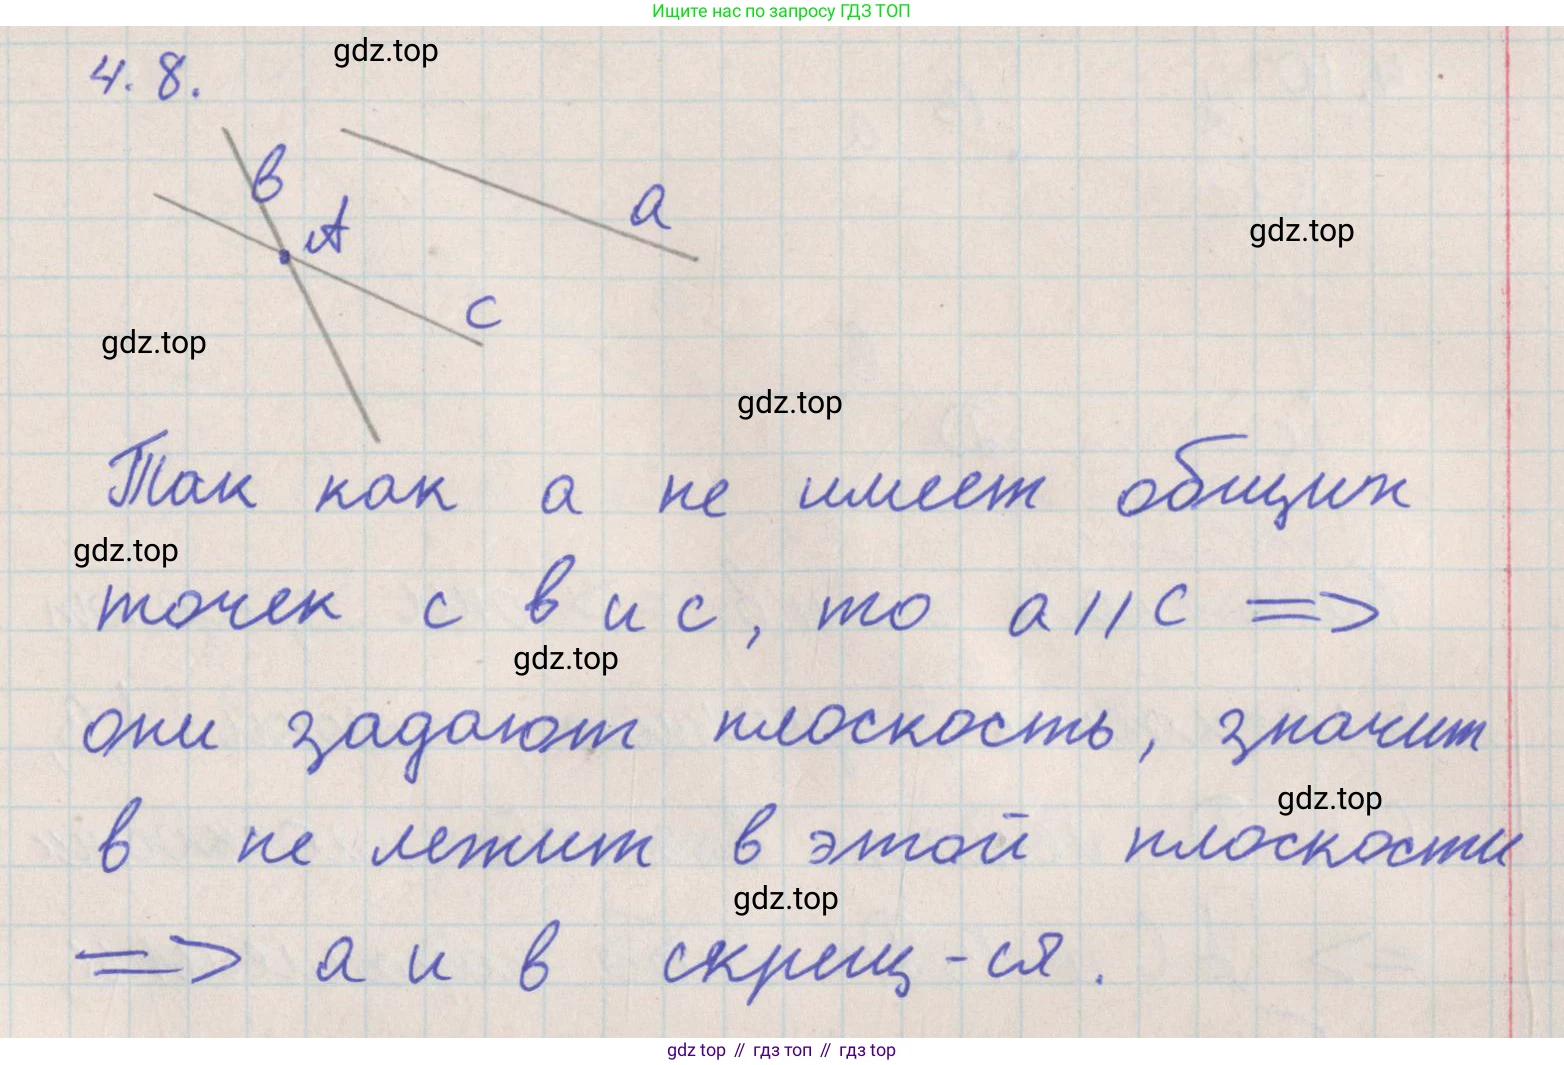 Ищите нас по запросу ГДЗ ТОП
gdz.top
4.8.
в
a
A
gdz.top
c
gdz.top
gdz.top
Так как a не имеет общих
gdz.top
точек с в и с, то a || c =>
gdz.top
они задают плоскость, значит
gdz.top
в не лежит в этой плоскости
gdz.top
=> a и в скрещ-ся.
gdz top // гдз топ // гдз top